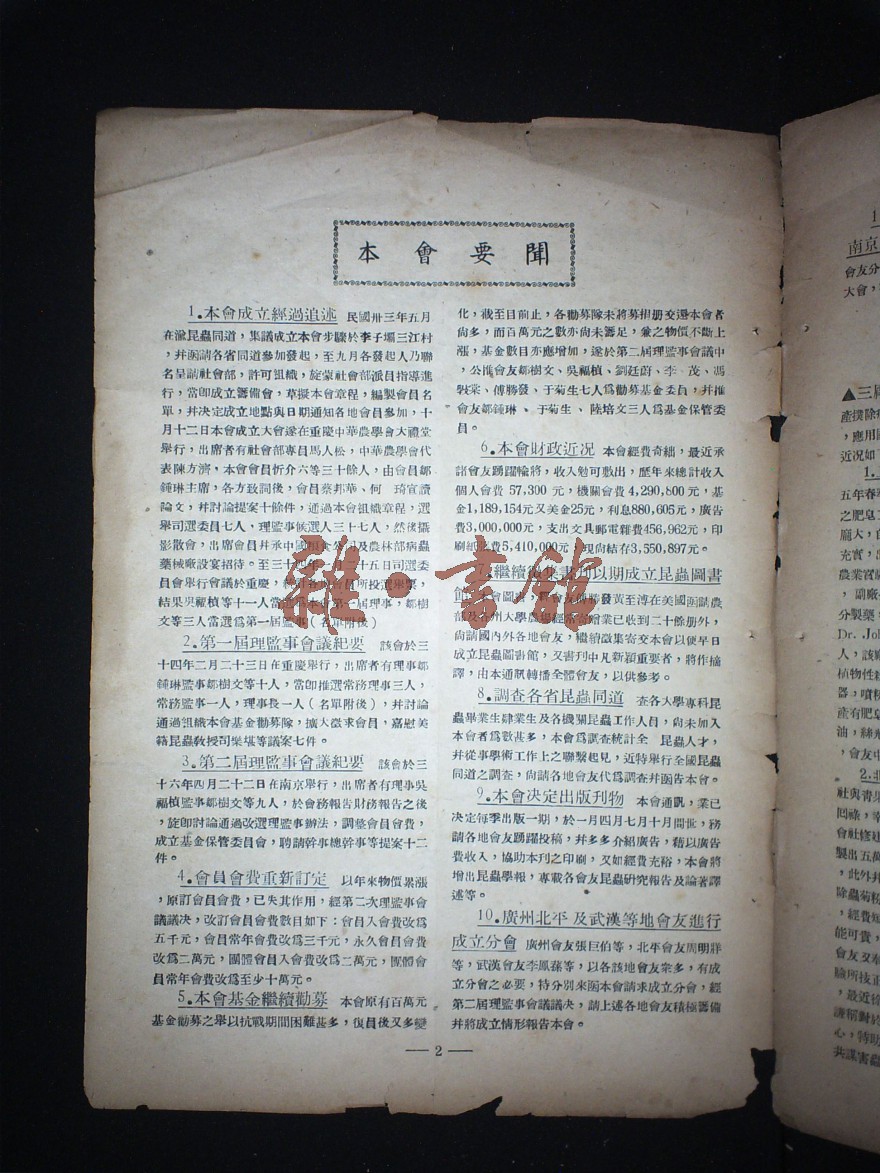 本會要聞
1.本會成立經過追述 民國卅三年五月
在渝昆蟲同道，集議成立本會步驟於李子壩三江村
，幷函請各省同道參加發起，至九月各發起人乃聯
名呈請社會部，許可組織，旋蒙社會部派員指導進
行，當卽成立籌備會，草擬本會章程，編製會員名
單，幷決定成立地點與日期通知各地會員參加，十
月十二日本會成立大會遂在重慶中華農學會大禮堂
舉行，出席者有社會部專員馬人松，中華農學會代
表陳方濟，本會會員忻介六等三十餘人，由會員鄒
鍾琳主席，各方致詞後，會員蔡邦華、何 琦宣讀
論文，幷討論提案十餘件，通過本會組織章程，選
舉司選委員七人，理監事候選人三十七人，然後攝
影散會，出席會員幷承中國植食公司及農林部病蟲
藥械廠設宴招待。至三十四年 月二十五日司選委
員會舉行會議於重慶， 會員所投選舉票，
結果吳福楨等十一人當選爲本會第一屆理事，鄒樹
文等三人當選爲第一屆監事（名單附後）
2.第一屆理監事會議紀要 該會於三
十四年二月二十三日在重慶舉行，出席者有理事鄒
鍾琳監事鄒樹文等十人，當卽推選常務理事三人，
常務監事一人，理事長一人（名單附後），幷討論
通過組織本會基金勸募隊，擴大徵求會員，嘉慰美
籍昆蟲敎授司樂堪等議案七件。
3.第二屆理監事會議紀要 該會於三
十六年四月二十二日在南京舉行，出席者有理事吳
福楨監事鄒樹文等九人，於會務報告財務報告之後
，旋卽討論通過改選理監事辦法，調整會員會費，
成立基金保管委員會，聘請幹事總幹事等提案十二
件。
4.會員會費重新訂定 以年來物價累漲
，原訂會員會費，已失其作用，經第二次理監事會
議議决，改訂會員會費數目如下：會員入會費改爲
五千元，會員常年會費改爲三千元，永久會員會費
改爲二萬元，團體會員入會費改爲二萬元，團體會
員常年會費改爲至少十萬元。
5.本會基金繼續勸募 本會原有百萬元
基金勸募之舉以抗戰期間困難甚多，復員後又多變
化，截至目前止，各勸募隊未將募捐册交還本會者
尙多，而百萬元之數亦尙未籌足，兼之物價不斷上
漲，基金數目亦應增加，遂於第二屆理監事會議中
，公推會友鄒樹文、吳福楨、劉廷蔚、李 茂、馮
斅棠、傅勝發、于菊生七人爲勸募基金委員，幷推
會友鄒鍾琳、于菊生、陸培文三人爲基金保管委
員。
6.本會財政近況 本會經費奇絀，最近承
諸會友踴躍輸將，收入勉可敷出，歷年來總計收入
個人會費 57,300 元，機關會費 4,290,800 元，基
金1,189,154元又美金25元，利息880,605元，廣告
費3,000,000元，支出文具郵電雜費456,962元，印
刷紙張費5,410,000元，現尙結存3,550,897元。
7.繼續徵集書刊以期成立昆蟲圖書
館 本會圖書，經會友傅勝發黃至溥在美國函請農
部及各州大學農 常寄贈業已收到二十餘册外，
尙請國內外各地會友，繼續徵集寄交本會以便早日
成立昆蟲圖書館，又書刊中凡新穎重要者，將作摘
譯，由本通訊轉播全體會友，以供參考。
8.調查各省昆蟲同道 查各大學專科昆
蟲畢業生肄業生及各機關昆蟲工作人員，尙未加入
本會者爲數甚多，本會爲調查統計全 昆蟲人才，
幷從事學術工作上之聯繫起見，近特舉行全國昆蟲
同道之調查，尙請各地會友代爲調查幷函告本會。
9.本會決定出版刊物 本會通訊，業已
決定每季出版一期，於一月四月七月十月問世，務
請各地會友踴躍投稿，幷多多介紹廣告，藉以廣告
費收入，協助本刊之印刷，又如經費充裕，本會將
增出昆蟲學報，專載各會友昆蟲硏究報告及論著譯
述等。
10.廣州北平及武漢等地會友進行
成立分會 廣州會友張巨伯等，北平會友周明牂
等，武漢會友李鳳蓀等，以各該地會友衆多，有成
立分會之必要，特分別來函本會請求成立分會，經
第二屆理監事會議議決，請上述各地會友積極籌備
幷將成立情形報告本會。
— 2 —
雜·書館
南京
會友分
大會，
▲三國
產撲除病
，應用圖
近況如下
五年春季
之肥皂工
龐大，自
充實，出
農業實施
，副廠
分製藥，
Dr. Joh
人，該廠
植物性殺
器，噴粉
產有肥皂
油，絲光
，會友中
2.北
社與菁果
會社修建
製出五萬
，此外幷
除蟲菊粉
，經費短
能可貴，
會友又奉
論所技正
，最近徐
謙稱對於
心，特助
共謀害蟲